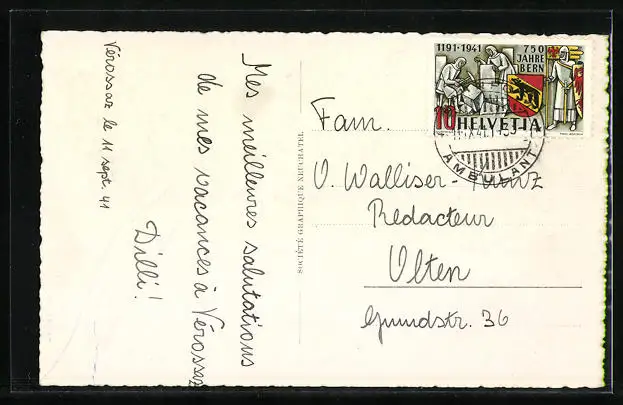 Vérossaz le 11 sept. 41
Mes meilleures salutations
de mes vacances à Vérossaz
Dilli!
SOCIÉTÉ GRAPHIQUE NEUCHATEL
1191·1941
750
JAHRE
BERN
10 HELVETIA
AMBULANT
Fam.
O. Walliser-Kunz
Redacteur
Olten
Grundstr. 36